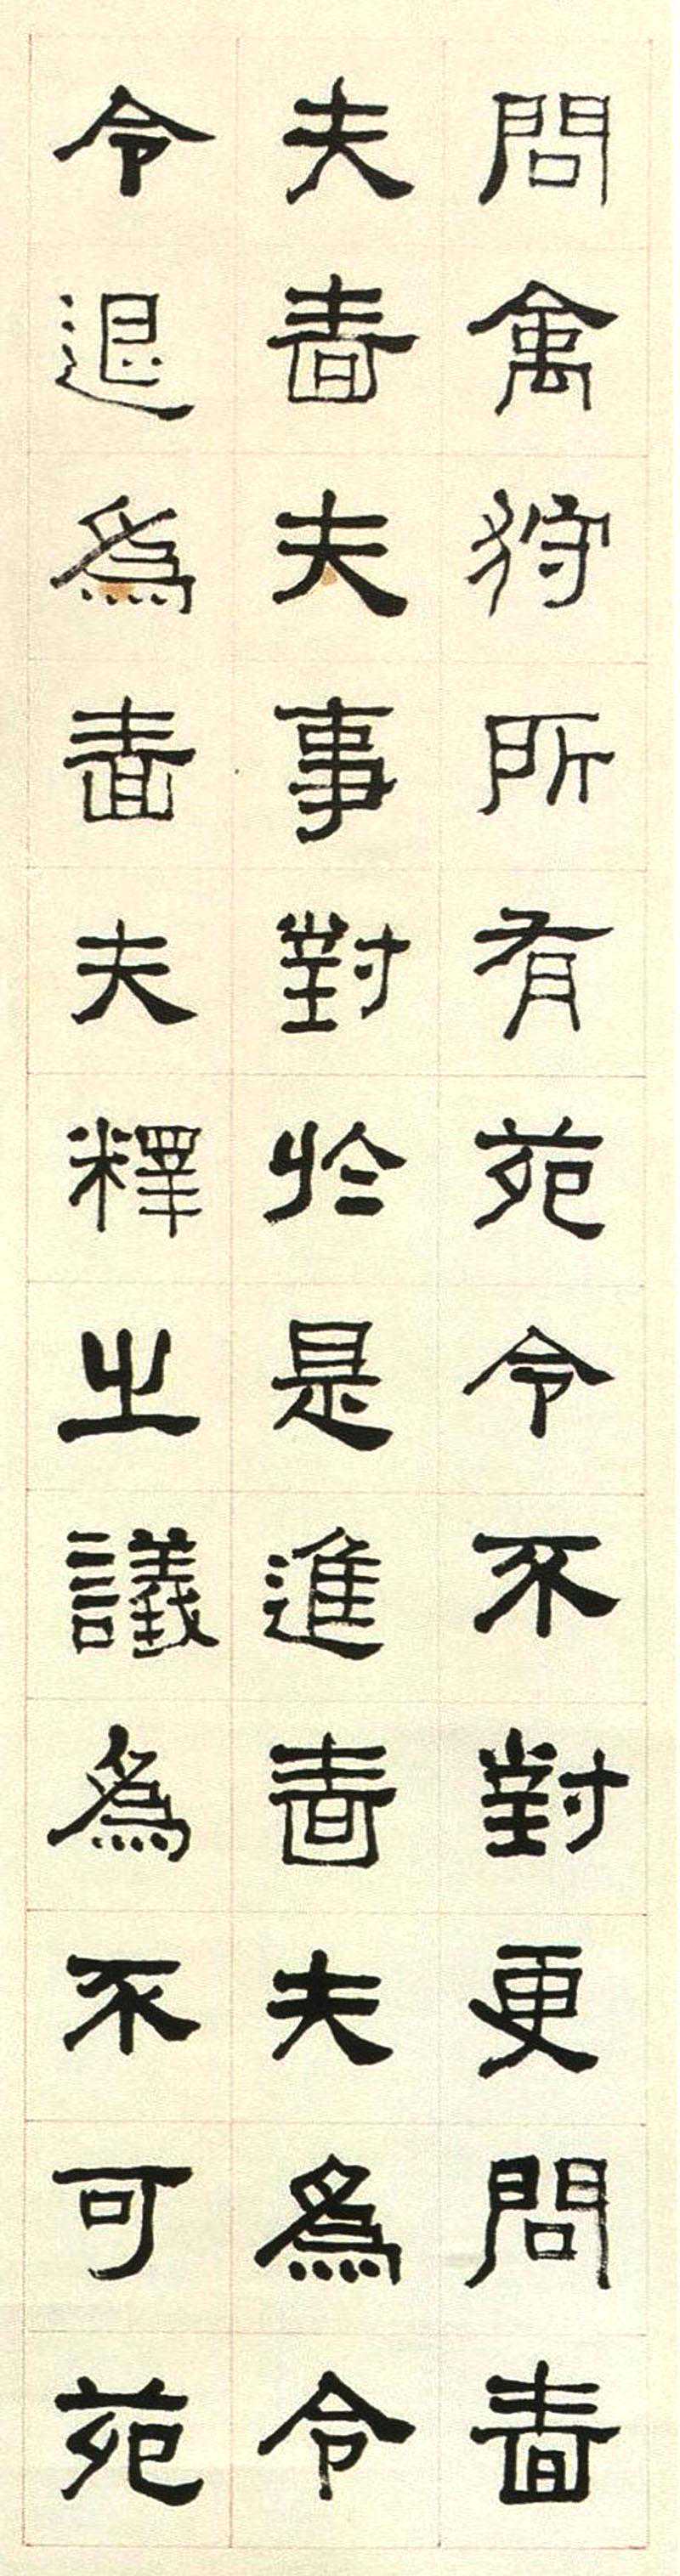 問禽狩所有苑令不對更問嗇
夫嗇夫事對於是進嗇夫為令
令退為嗇夫釋之議為不可苑